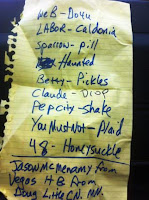 Web - Do4u
LABOR - Caldonia
Sparrow - pill
Haunted
Betty - Pickles
Claude - Drop
Pep city - shake
You Must Not - Plaid
48 - Honeysuckle
Jason McMenamy from
Vegas H B from
Doug